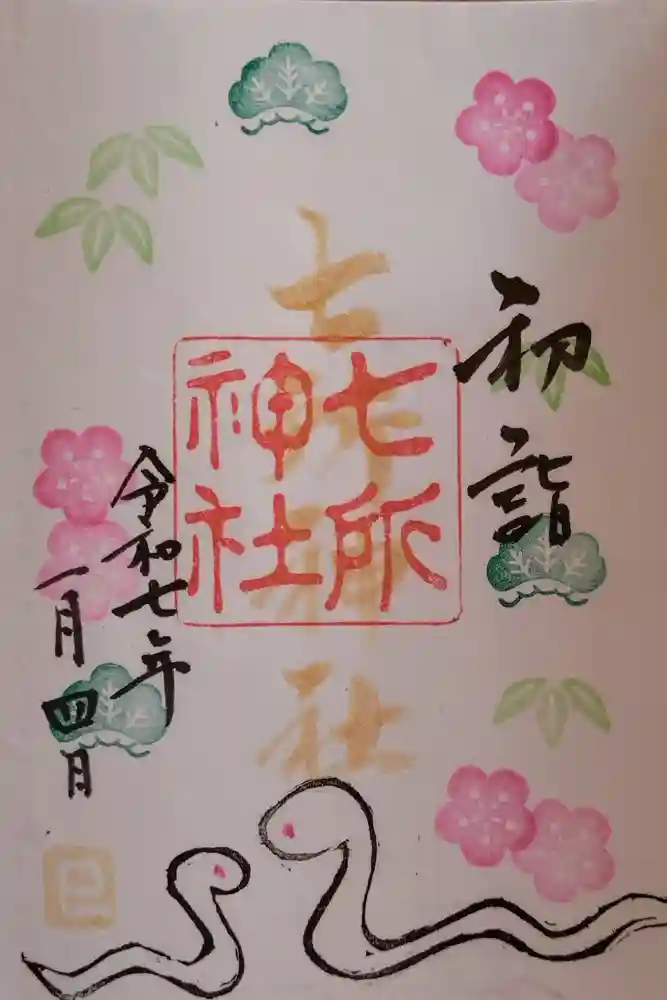 初詣
七所神社
七所
神社
令和七年
一月四日
巳